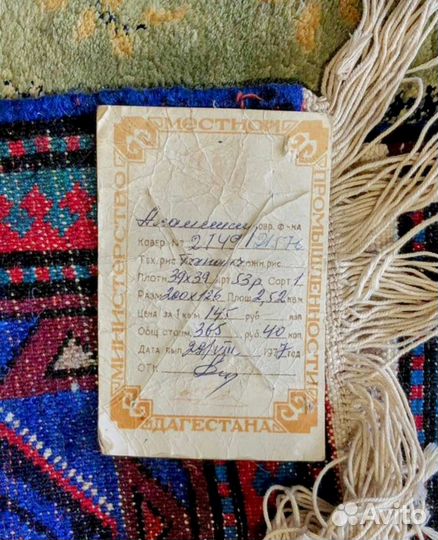 МЕСТНОЙ
МИНИСТЕРСТВО
ПРОМЫШЛЕННОСТИ
ДАГЕСТАНА
ковр. ф-ка
Ковер № 2749
Тех. рис жжн. рис
Плотн 39х39 арт 53р. Сорт 1
Разм 200х126 Площ 2,52 кв. м
Цена за 1 кв м 145 руб коп
Общ стоим. 365 руб. 40 коп
Дата вып. 29/VIII 1977 год
ОТК
Avito